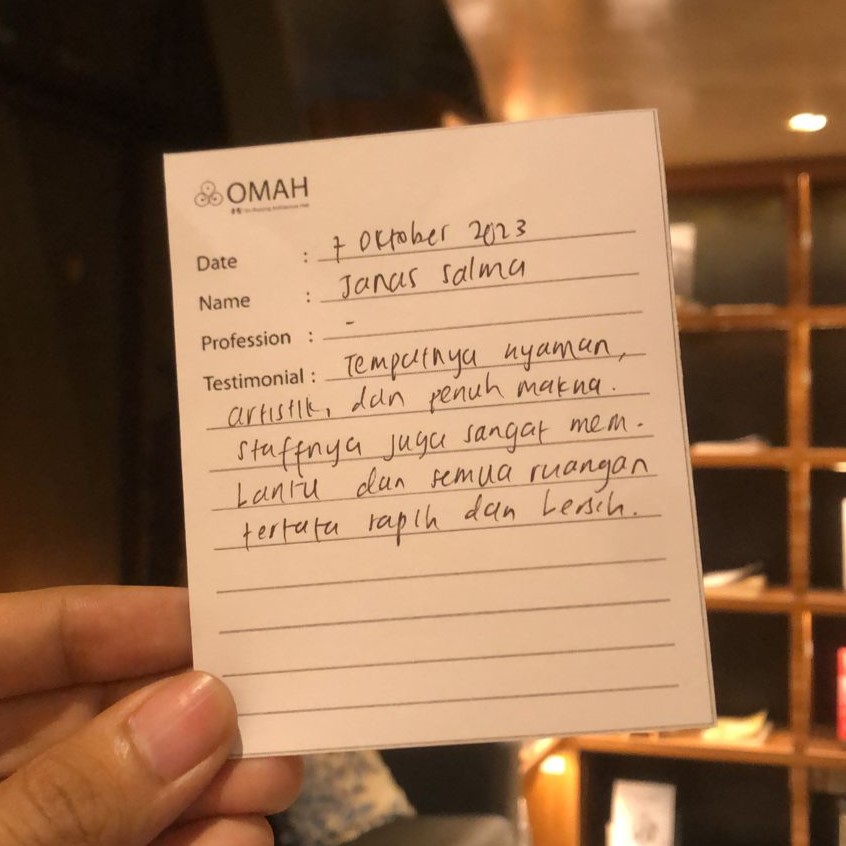 OMAH
Date : 7 Oktober 2023
Name : Janas Salma
Profession : -
Testimonial : Tempatnya nyaman,
artistik, dan penuh makna.
Staffnya juga sangat mem-
bantu dan semua ruangan
tertata rapih dan bersih.